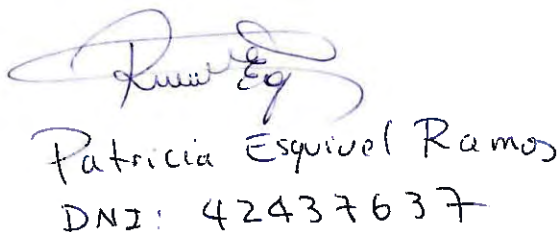 Patricia Esquivel Ramos
DNI: 42437637